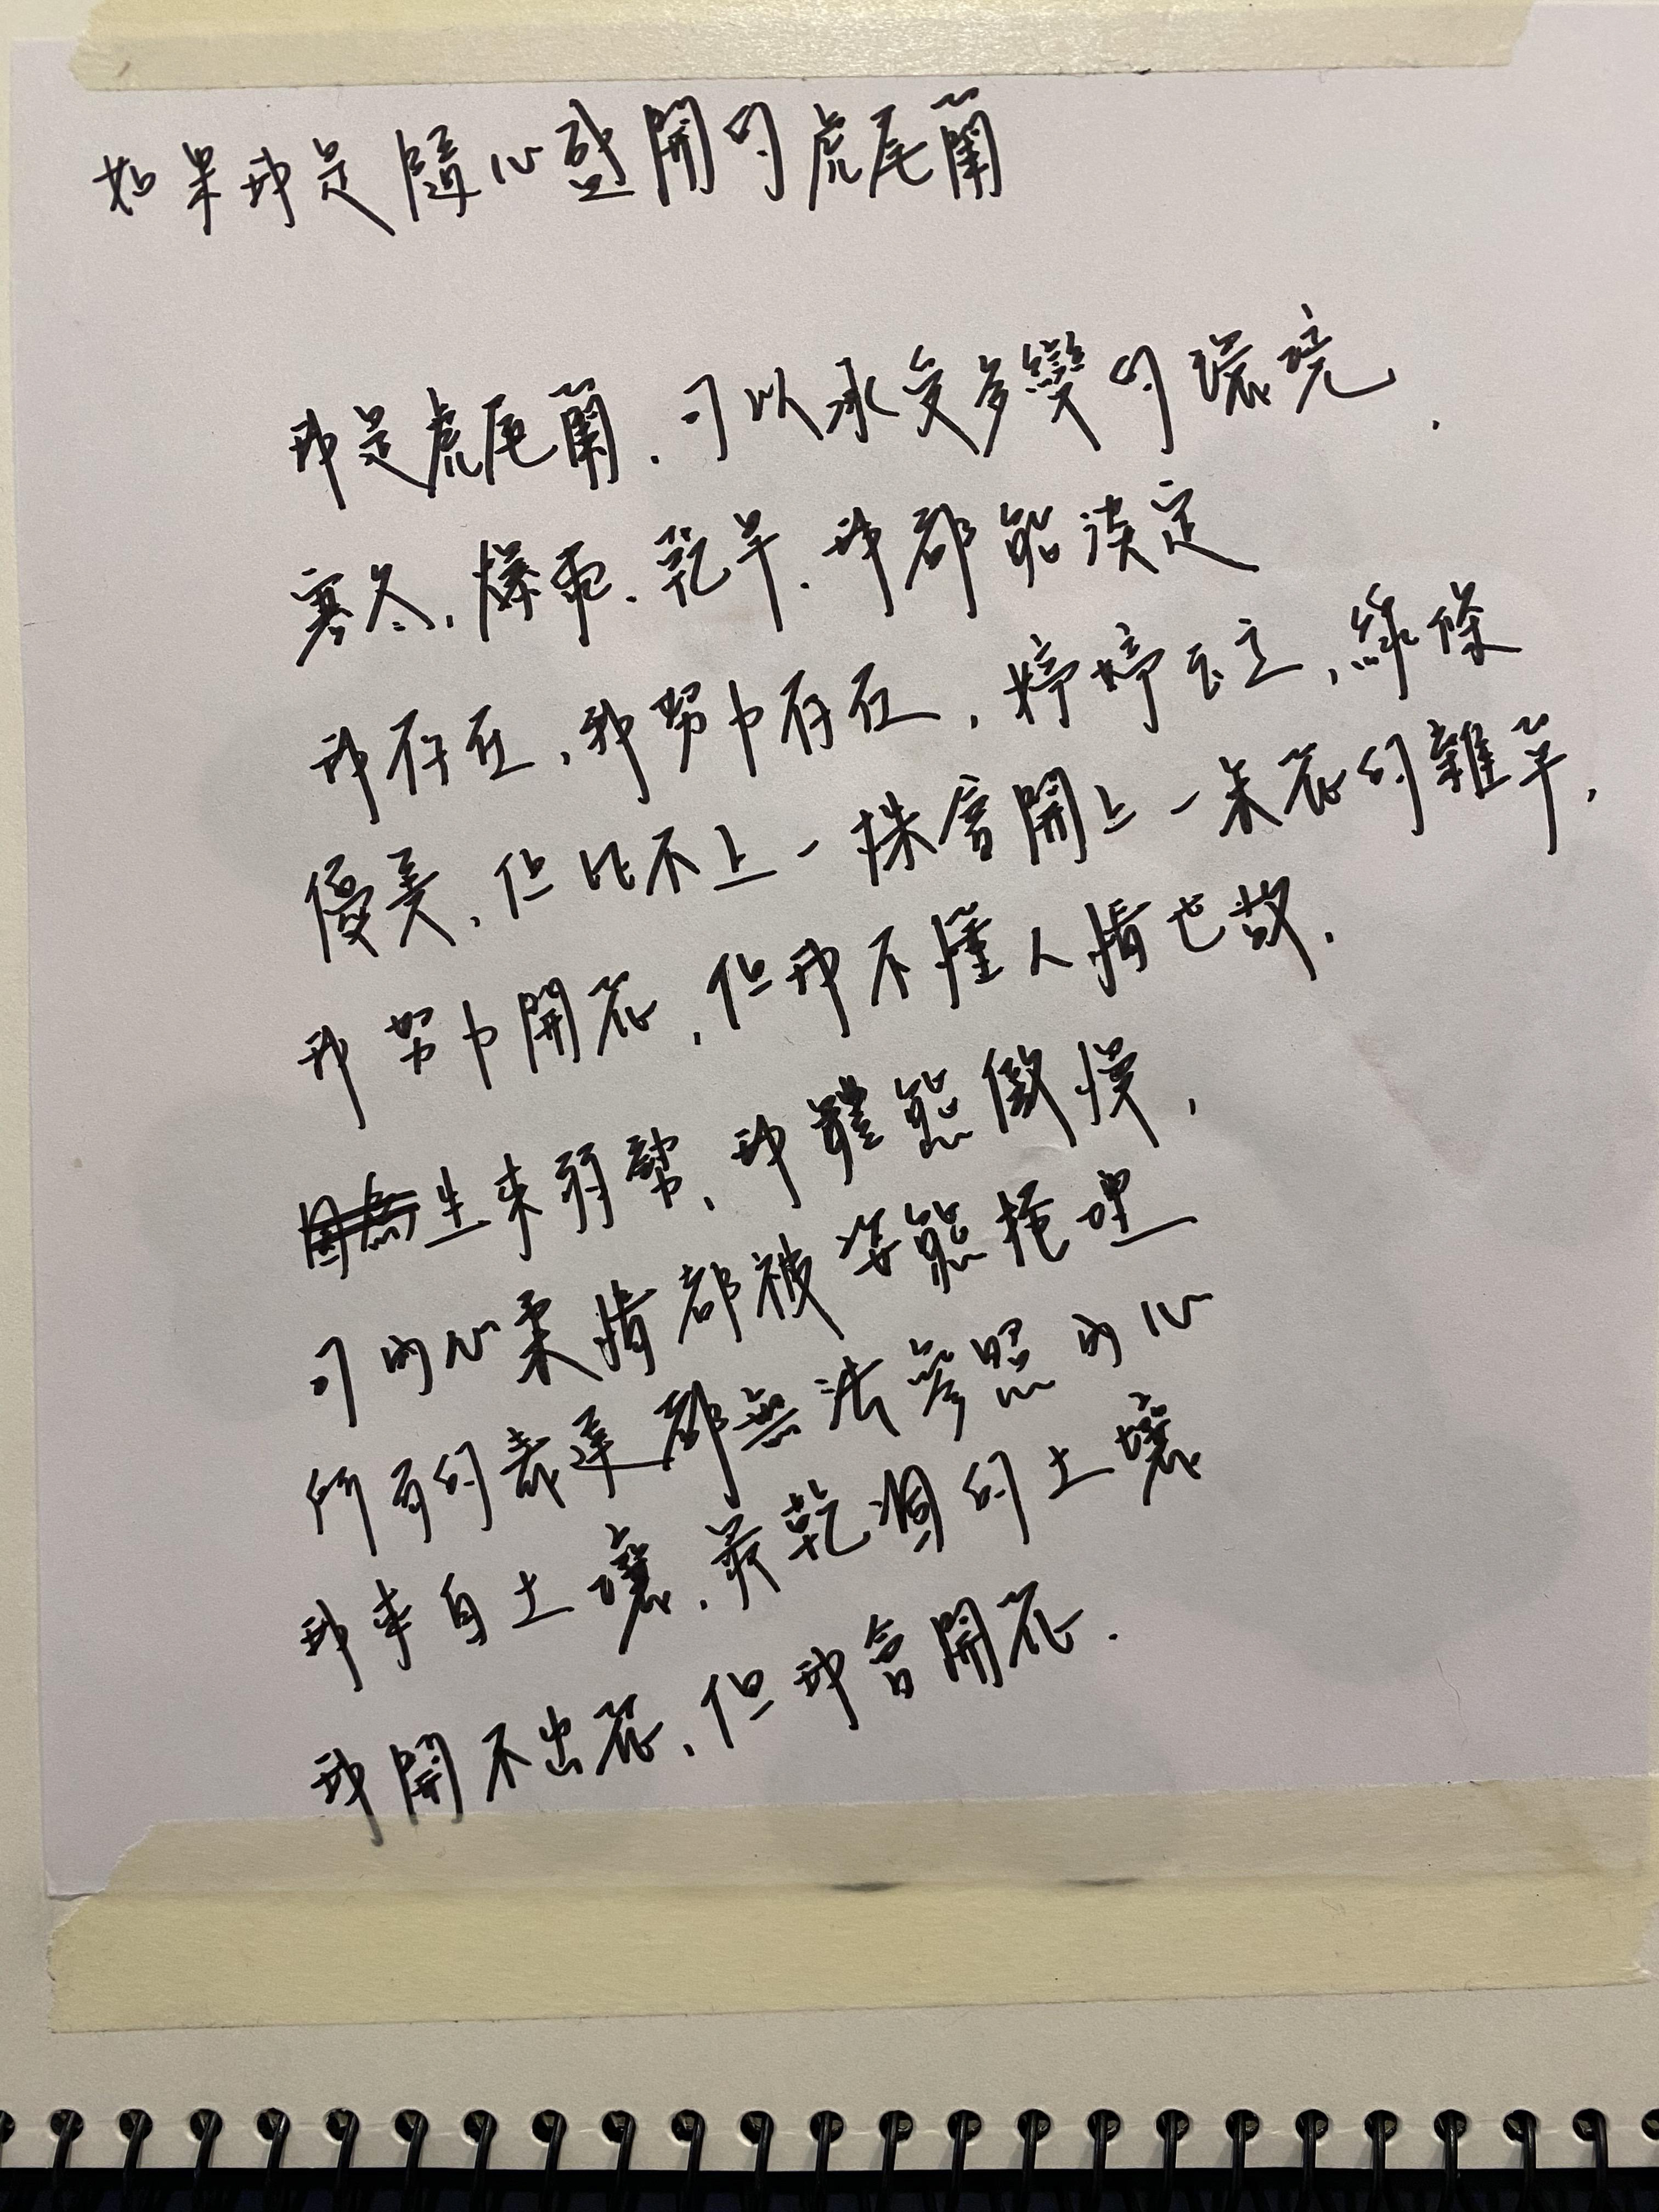 如果我是隨心盛開的虎尾蘭
我是虎尾蘭.可以承受多變的環境.
寒冬.爆雨.乾旱.我都能淡定
我存在,我努力存在,婷婷玉立,線條
優美,但比不上一株會開上一朵花的雜草,
我努力開花,但我不懂人情世故.
生來弱幫,我體態傲慢,
可的心柔情都被姿態掩埋
所有的表達都無法參照的心
我來自土壤.最乾涸的土壤
我開不出花,但我會開花.